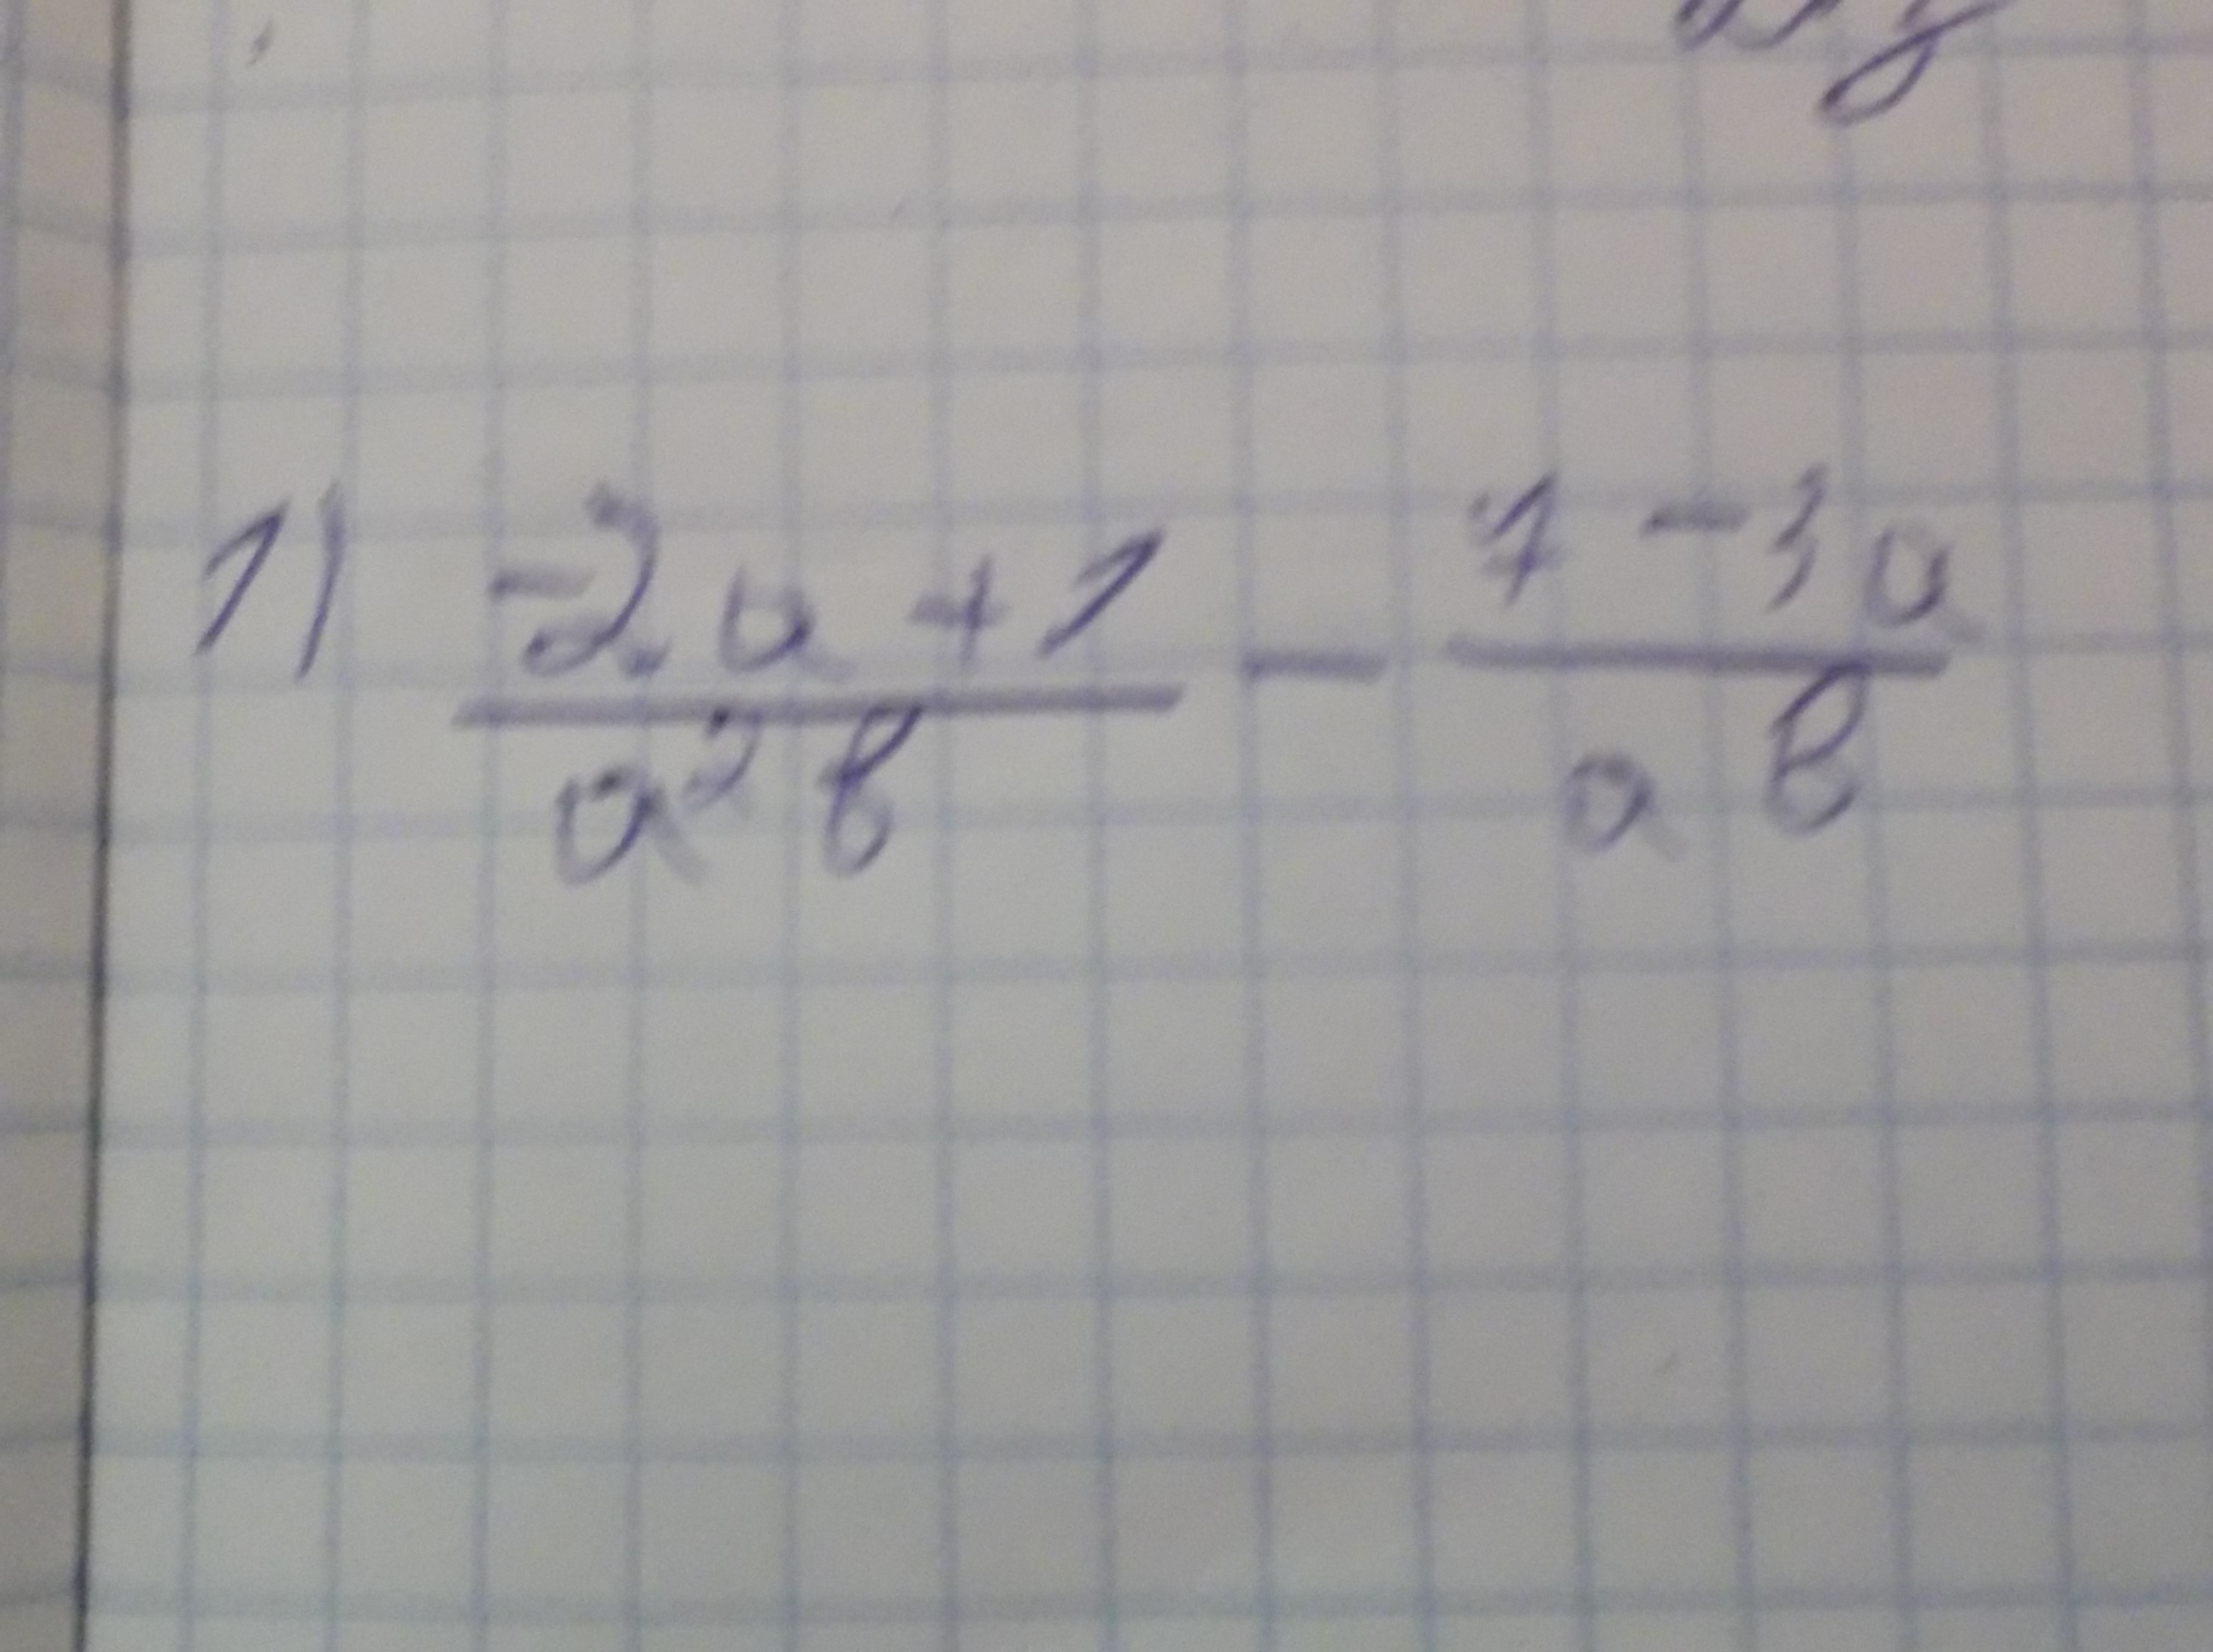 1) (-2a + 1)/(a²b) - (7 - 3a)/(ab)